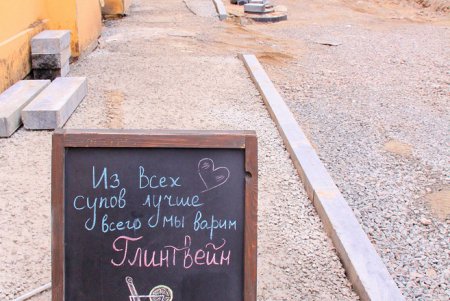 Из всех
супов лучше
всего мы варим
Глинтвейн